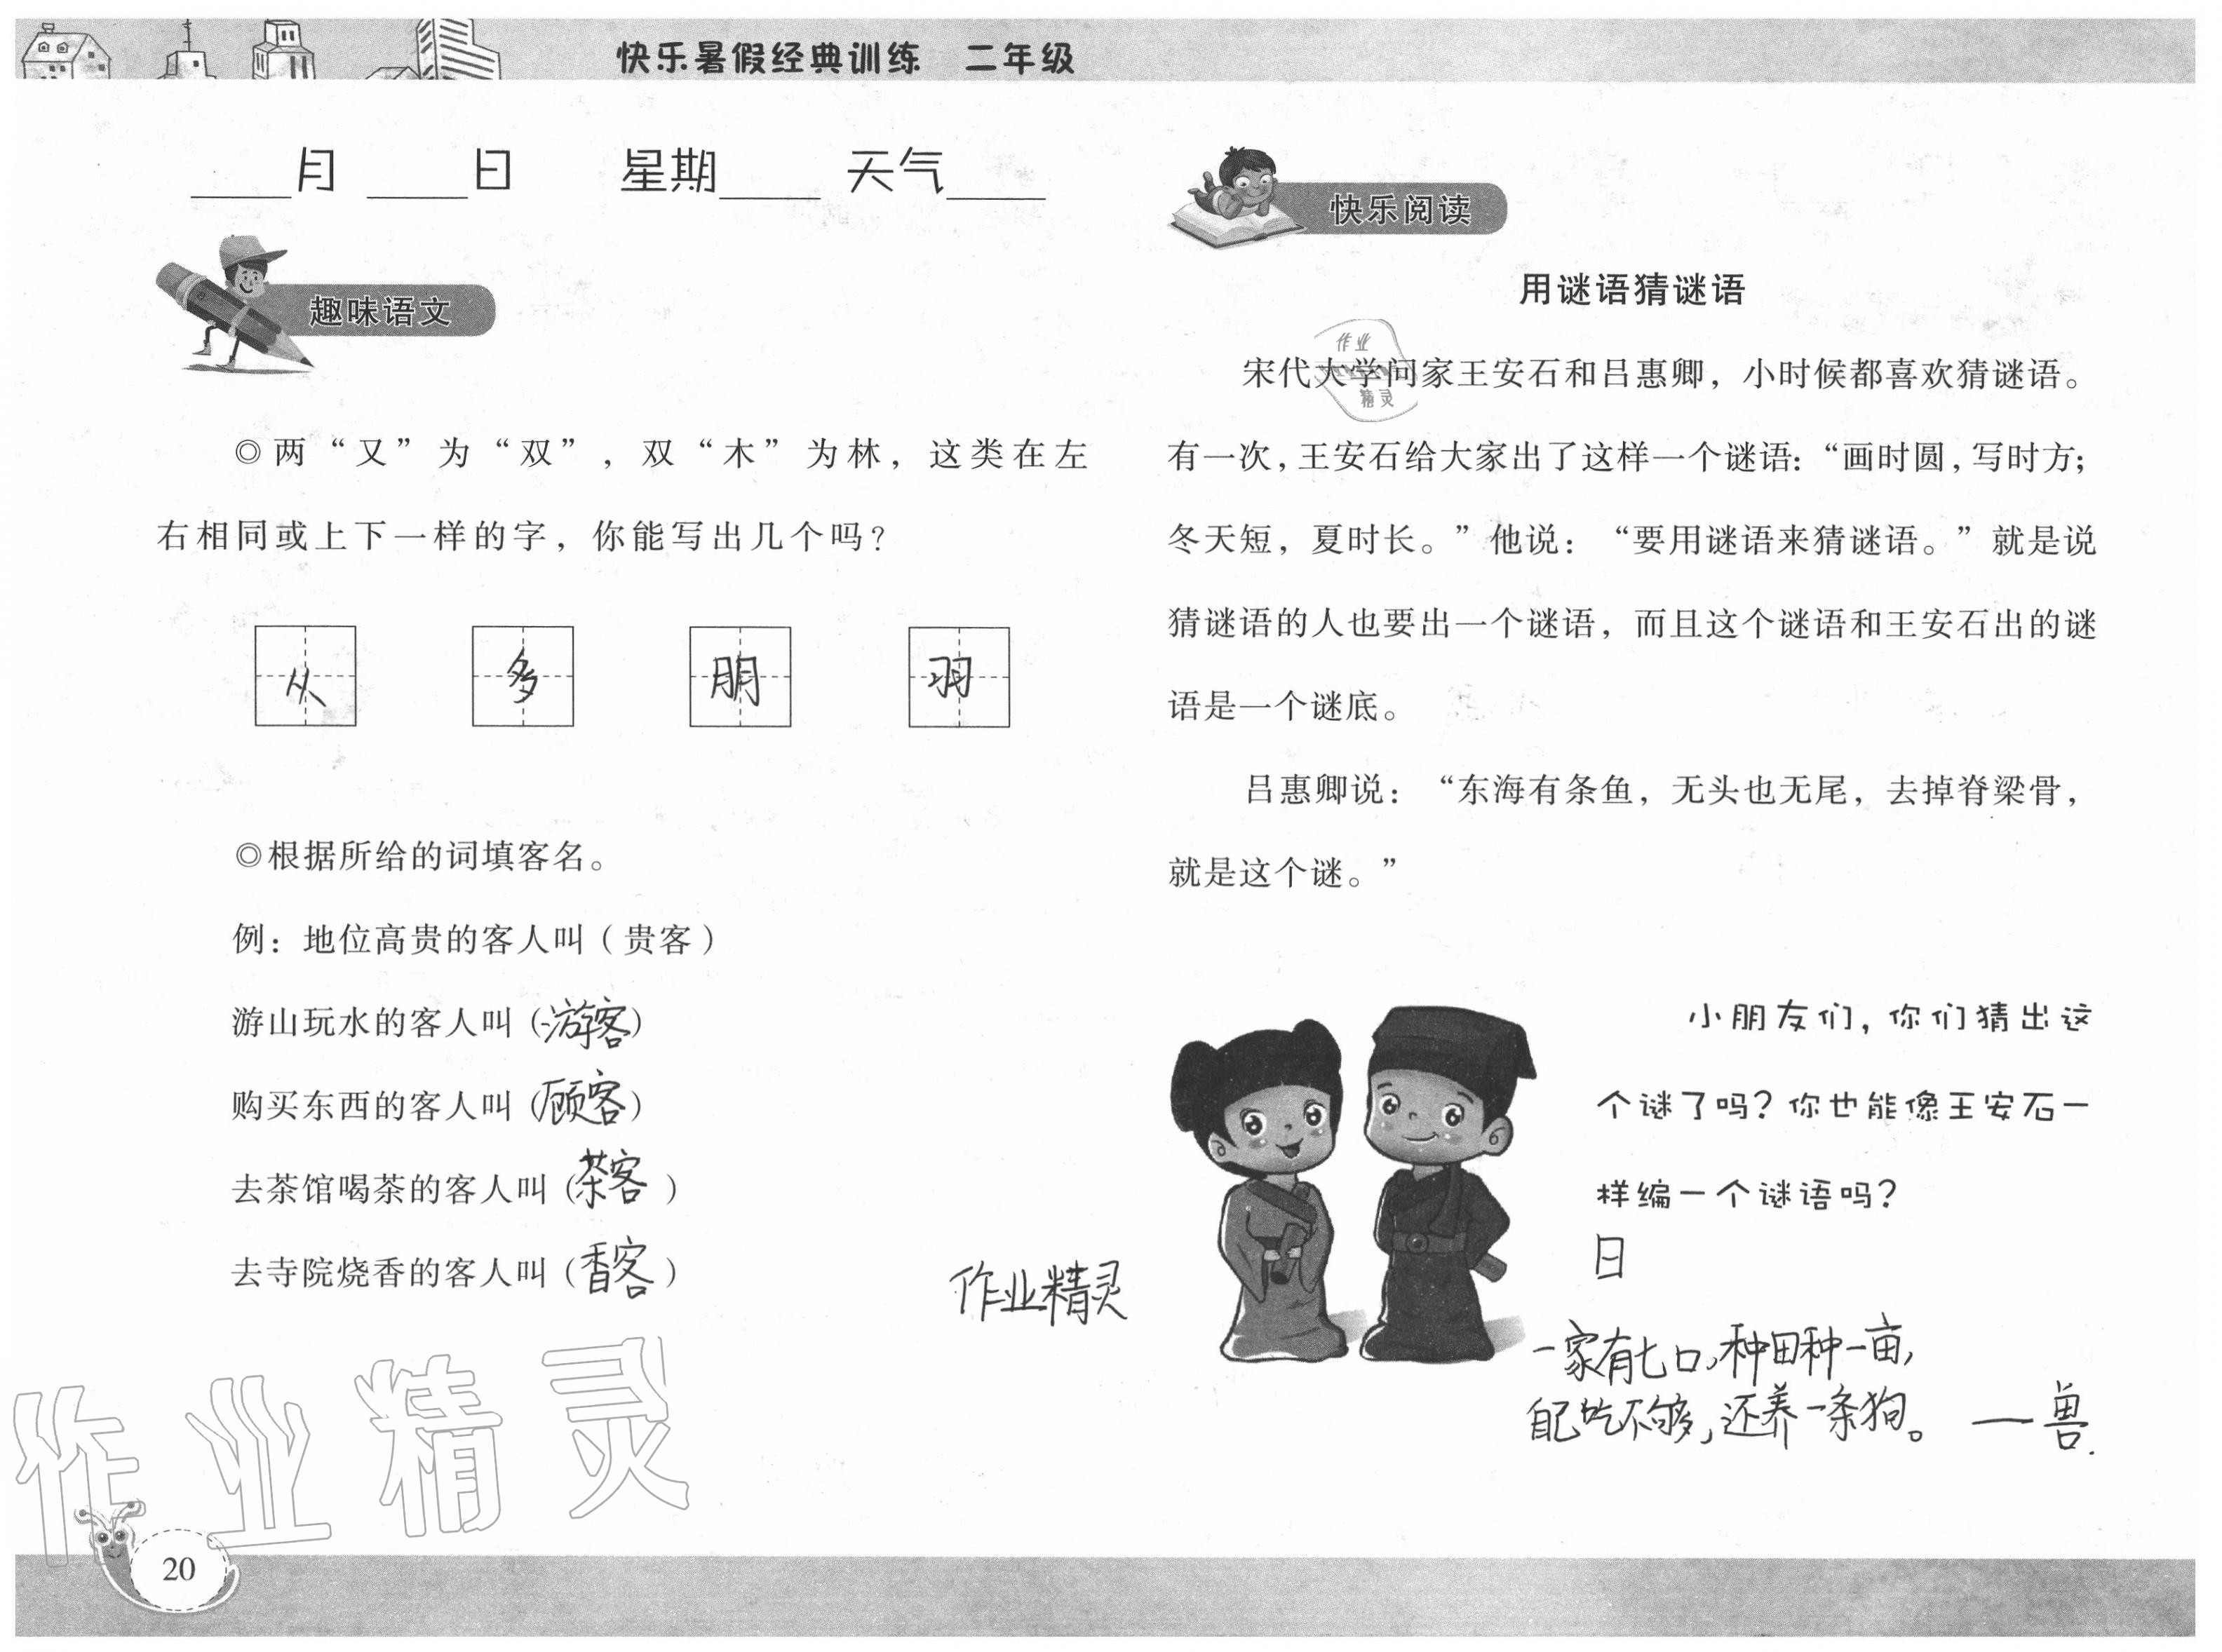 快乐暑假经典训练 二年级
____月 ____日 星期____ 天气____
趣味语文
◎两“又”为“双”，双“木”为林，这类在左
右相同或上下一样的字，你能写出几个吗？
从 多 朋 羽
◎根据所给的词填客名。
例：地位高贵的客人叫（贵客）
游山玩水的客人叫（游客）
购买东西的客人叫（顾客）
去茶馆喝茶的客人叫（茶客）
去寺院烧香的客人叫（香客）
作业精灵
作业精灵
20
快乐阅读
用谜语猜谜语
宋代大学问家王安石和吕惠卿，小时候都喜欢猜谜语。
作业
精灵
有一次，王安石给大家出了这样一个谜语：“画时圆，写时方；
冬天短，夏时长。”他说：“要用谜语来猜谜语。”就是说
猜谜语的人也要出一个谜语，而且这个谜语和王安石出的谜
语是一个谜底。
吕惠卿说：“东海有条鱼，无头也无尾，去掉脊梁骨，
就是这个谜。”
小朋友们，你们猜出这
个谜了吗？你也能像王安石一
样编一个谜语吗？
日
一家有七口，种田种一亩，
自己吃不够，还养一条狗。 —兽.